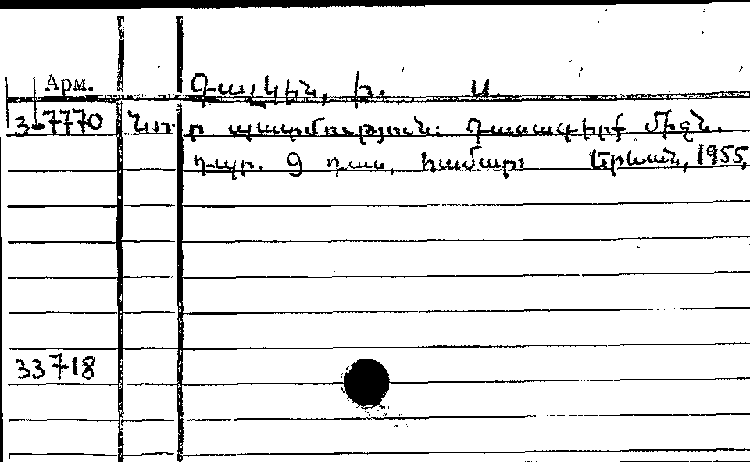 Арм. Գալկին, Ի. Ս.
3-7770 Նոր պատմություն: Դասագիրք միջն.
դպր. 9 դաս. համար: Երևան, 1955,
33718